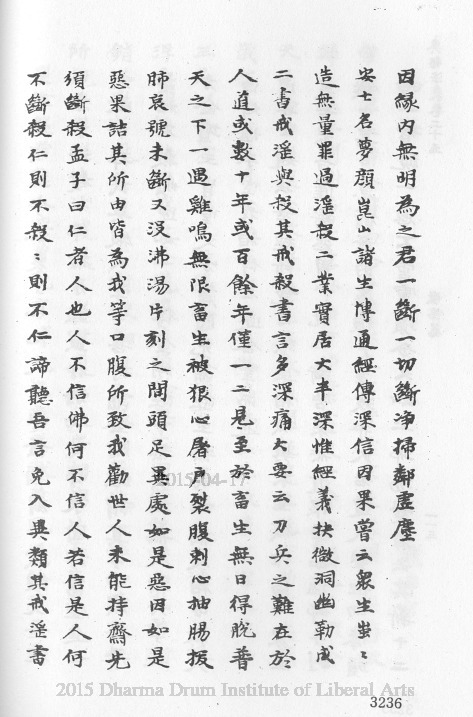 因緣內無明為之君一斷一切斷淨掃鄰虛塵
安士名夢顏崑山諸生博通經傳深信因果嘗云眾生蚩〻
造無量罪過淫殺二業實居大半深惟經義抉微洞幽勒成
二書戒淫與殺其戒殺書言多深痛大要云刀兵之難在於
人道或數十年或百餘年僅一二見至於畜生無日得脫普
天之下一遇雞鳴無限畜生被狠心屠戶裂腹刺心抽腸拔
肺哀號未斷又沒沸湯片刻之間頭足異處如是惡因如是
惡果詰其所由皆為我等口腹所致我勸世人未能持齋先
須斷殺孟子曰仁者人也人不信佛何不信人若信是人何
不斷殺仁則不殺〻則不仁諦聽吾言免入異類其戒淫書
2015-04-17
2015 Dharma Drum Institute of Liberal Arts
3236